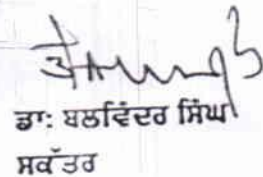 ਡਾ: ਬਲਵਿੰਦਰ ਸਿੰਘ
ਸਕੱਤਰ